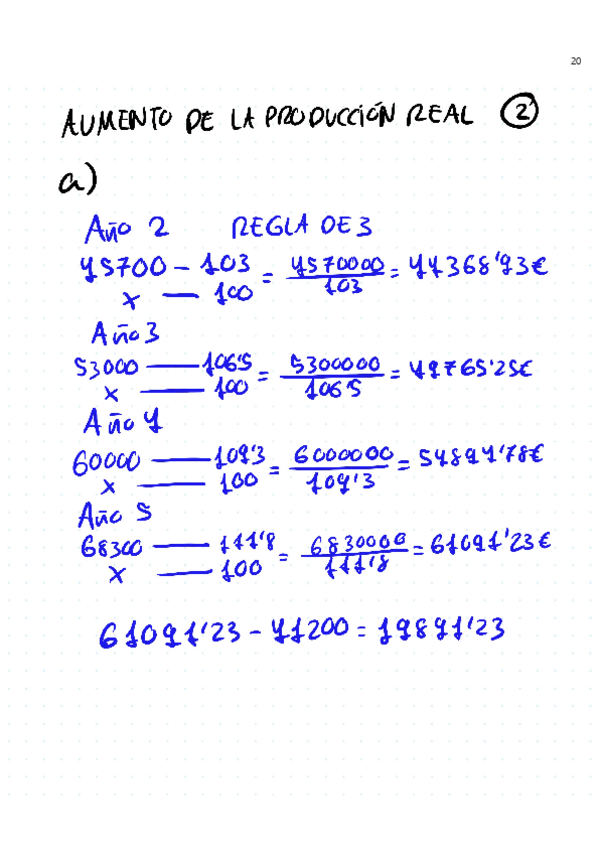 20
AUMENTO DE LA PRODUCCIÓN REAL ②
a)
Año 2 REGLA DE 3
45700 – 103 = 4570000 = 44368'93€
x — 100 103
Año 3
53000 — 106'5 = 5300000 = 49765'25€
x — 100 106'5
Año 4
60000 — 109'3 = 6000000 = 54894'78€
x — 100 109'3
Año 5
68300 — 111'8 = 6830000 = 61091'23€
x — 100 111'8
61091'23 - 41200 = 19891'23